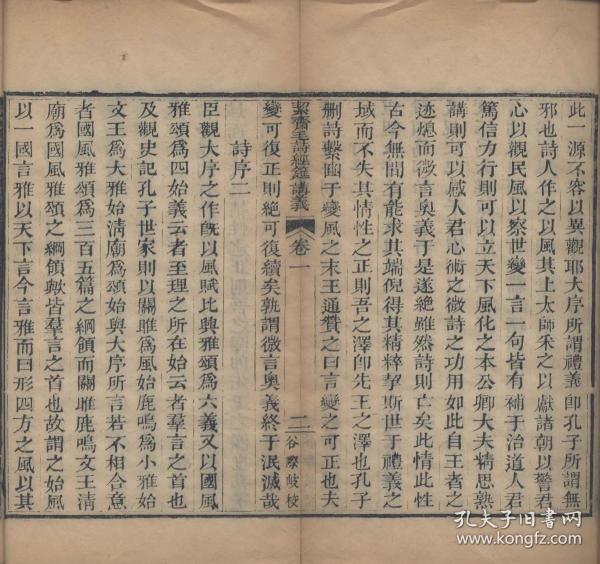 此一源不容以異觀耶大序所謂禮義卽孔子所謂無
邪也詩人作之以風其上太師采之以獻諸朝以警君
心以觀民風以察世變一言一句皆有補于治道人君
篤信力行則可以立天下風化之本公卿大夫精思熟
講則可以感人君心術之微詩之功用如此自王者之
迹熄而微言奥義于是遂絶雖然詩則亡矣此情此性
古今無閒有能求其端倪得其精粹挈斯世于禮義之
域而不失其情性之正則吾之澤卽先王之澤也孔子
刪詩繫豳于變風之末王通贊之曰言變之可正也夫
絜齋毛詩經筵講義
卷一
二
谷際岐校
變可復正則絶可復續矣孰謂微言奥義終于泯滅哉
詩序二
臣觀大序之作旣以風賦比興雅頌爲六義又以國風
雅頌爲四始義云者至理之所在始云者羣言之首也
及觀史記孔子世家則以關雎爲風始鹿鳴爲小雅始
文王爲大雅始淸廟爲頌始與大序所言若不相合意
者國風雅頌爲三百五篇之綱領而關雎鹿鳴文王淸
廟爲國風雅頌之綱領歟皆羣言之首也故謂之始風
以一國言雅以天下言今言雅而曰形四方之風以其
孔夫子旧书网
www.kongfz.com